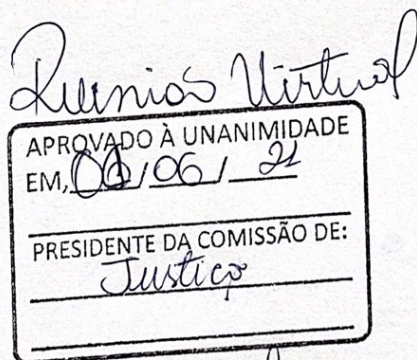 Reunião Virtual
APROVADO À UNANIMIDADE
EM, /06/ 21
PRESIDENTE DA COMISSÃO DE:
Justiça